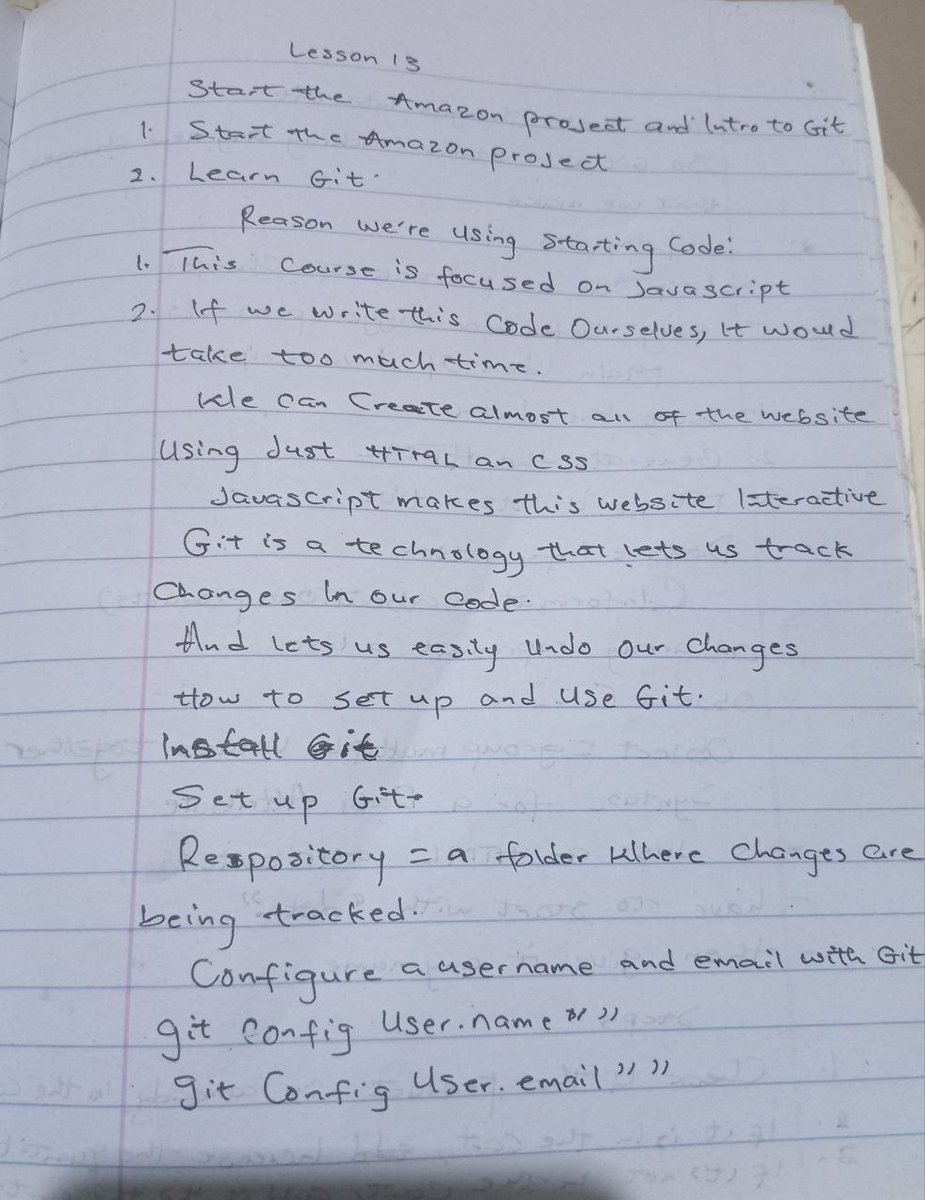 Lesson 13
Start the Amazon project and Intro to Git
1. Start the Amazon project
2. Learn Git.
Reason we're using starting Code:
1. This Course is focused on Javascript
2. If we write this Code Ourselves, It would
take too much time.
We Can Create almost all of the website
Using Just HTML an CSS
Javascript makes this website Interactive
Git is a technology that lets us track
Changes In our Code.
And lets us easily Undo Our Changes
How to set up and Use Git.
Install Git
Set up Git
Respository = a folder Where Changes are
being tracked.
Configure a username and email with Git
git Config User.name " "
git Config User.email " "